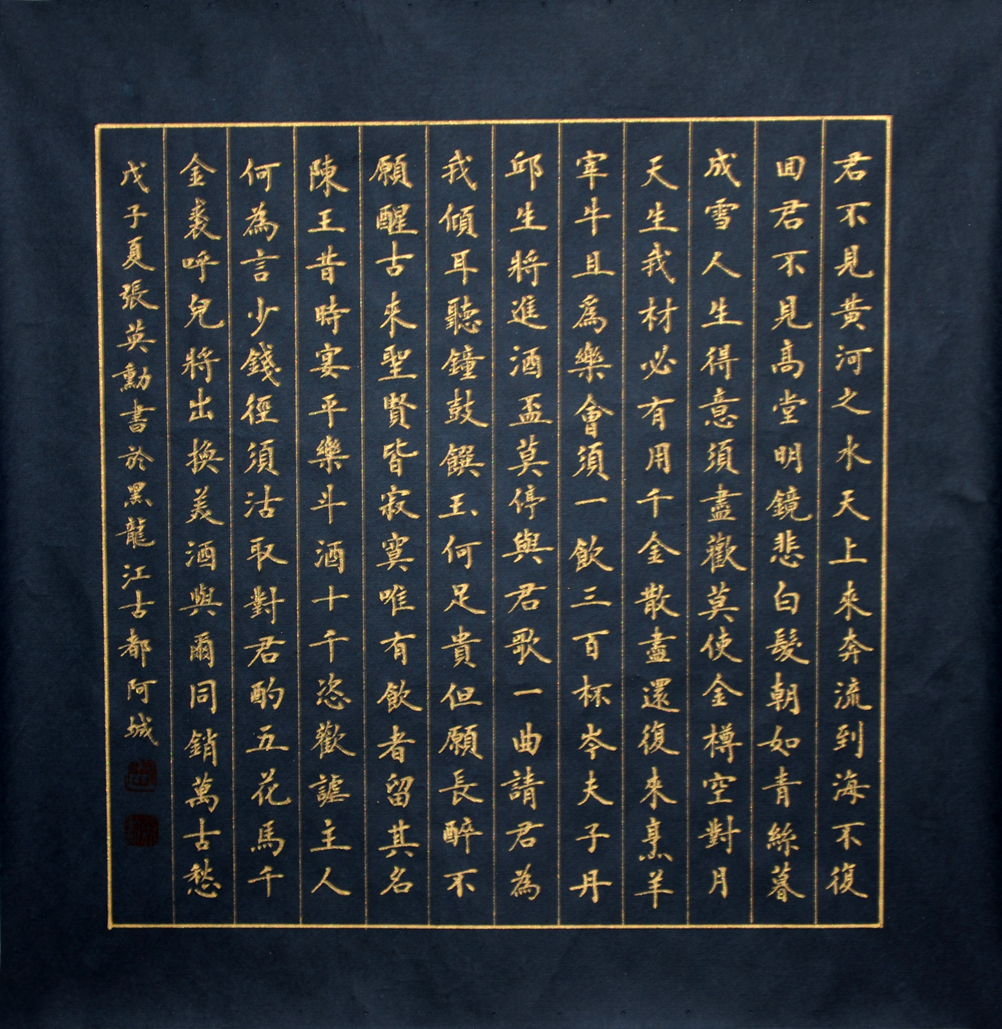 君不見黃河之水天上來奔流到海不復
囬君不見高堂明鏡悲白髮朝如青絲暮
成雪人生得意須盡歡莫使金樽空對月
天生我材必有用千金散盡還復來烹羊
宰牛且爲樂會須一飲三百杯岑夫子丹
邱生將進酒盃莫停與君歌一曲請君為
我傾耳聽鐘鼓饌玉何足貴但願長醉不
願醒古來聖賢皆寂寞唯有飲者留其名
陳王昔時宴平樂斗酒十千恣歡謔主人
何為言少錢徑須沽取對君酌五花馬千
金裘呼兒將出換美酒與爾同銷萬古愁
戊子夏張英勳書於黑龍江古都阿城